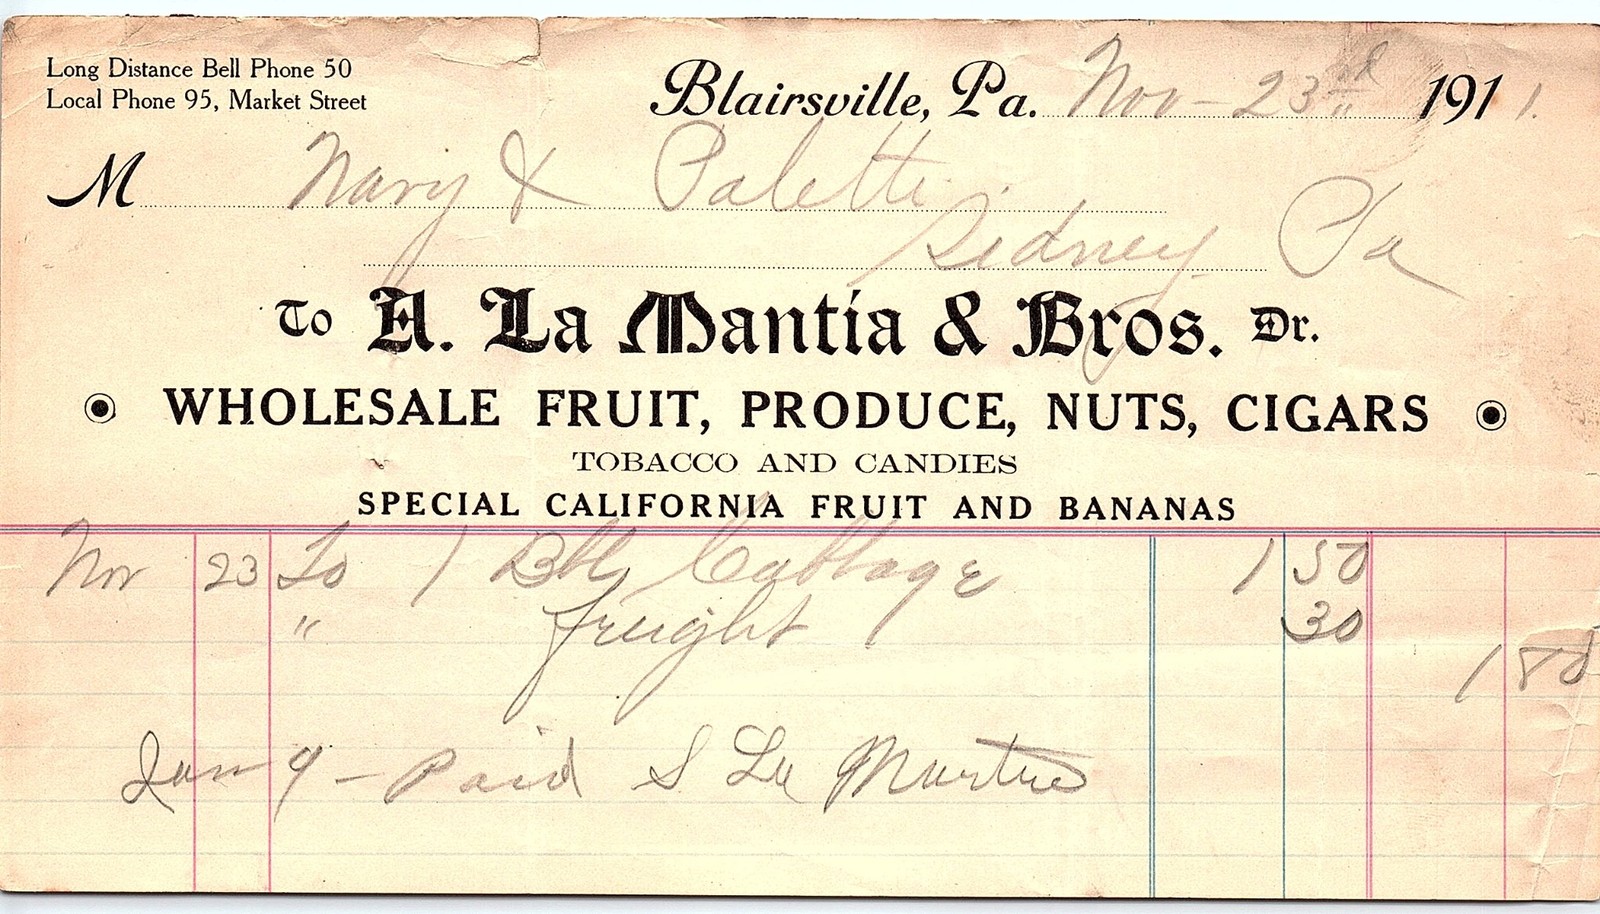 Long Distance Bell Phone 50
Local Phone 95, Market Street
Blairsville, Pa. Nov - 23rd 1911.
M Nary & Paletti
Sidney Pa
To A. La Mantia & Bros. Dr.
WHOLESALE FRUIT, PRODUCE, NUTS, CIGARS
TOBACCO AND CANDIES
SPECIAL CALIFORNIA FRUIT AND BANANAS
Nov 23 To 1 Bbl Cabbage 1 50
" freight 30
1 80
Jan 9 - Paid S La